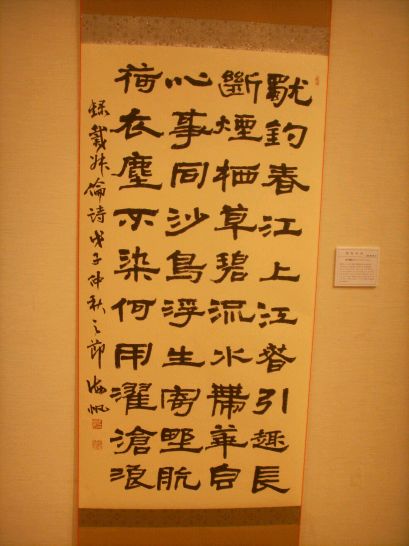 獨釣春江上江春引趣長
斷煙栖草碧流水帶華香
心事同沙鳥浮生寄野航
荷衣塵不染何用濯滄浪
錄戴叔倫詩戊子仲秋之節海帆